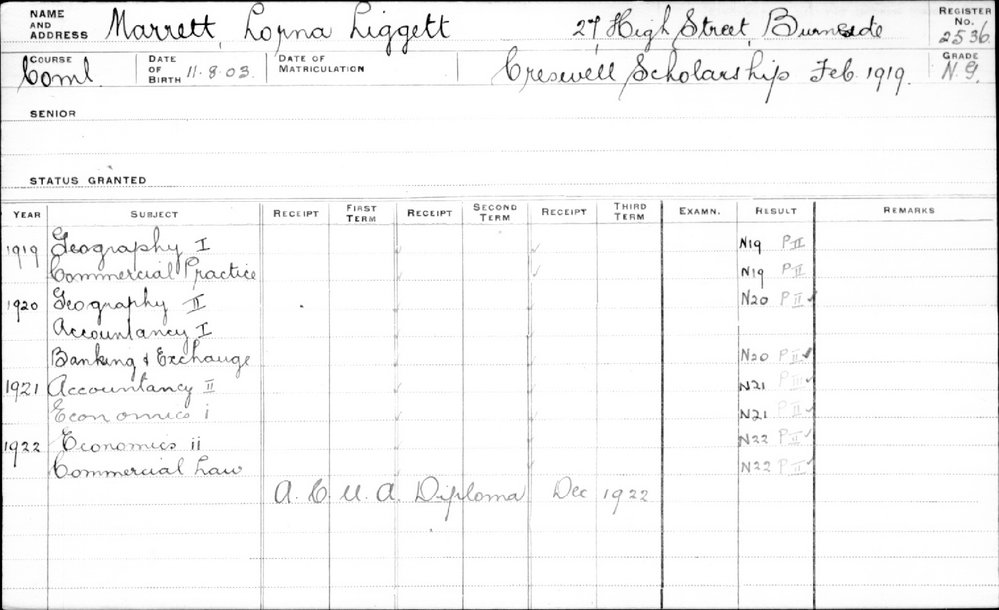 NAME AND ADDRESS Marrett, Lorna Liggett 27, High Street, Burnside REGISTER No. 2536
COURSE Coml DATE OF BIRTH 11.8.03. DATE OF MATRICULATION Creswell Scholarship Feb. 1919. GRADE N.G.
SENIOR
STATUS GRANTED
YEAR SUBJECT RECEIPT FIRST TERM RECEIPT SECOND TERM RECEIPT THIRD TERM EXAMN. RESULT REMARKS
1919 Geography I ✓ ✓ N19 P II
Commercial Practice ✓ ✓ N19 P II
1920 Geography II N20 P II ✓
Accountancy I
Banking & Exchange N20 P II ✓
1921 Accountancy II ✓ ✓ N21 ✓
Economics i ✓ ✓ N21 P II ✓
1922 Economics ii ✓ ✓ N22 P II ✓
Commercial Law ✓ N22 P II ✓
A.C.U.A. Diploma Dec 1922